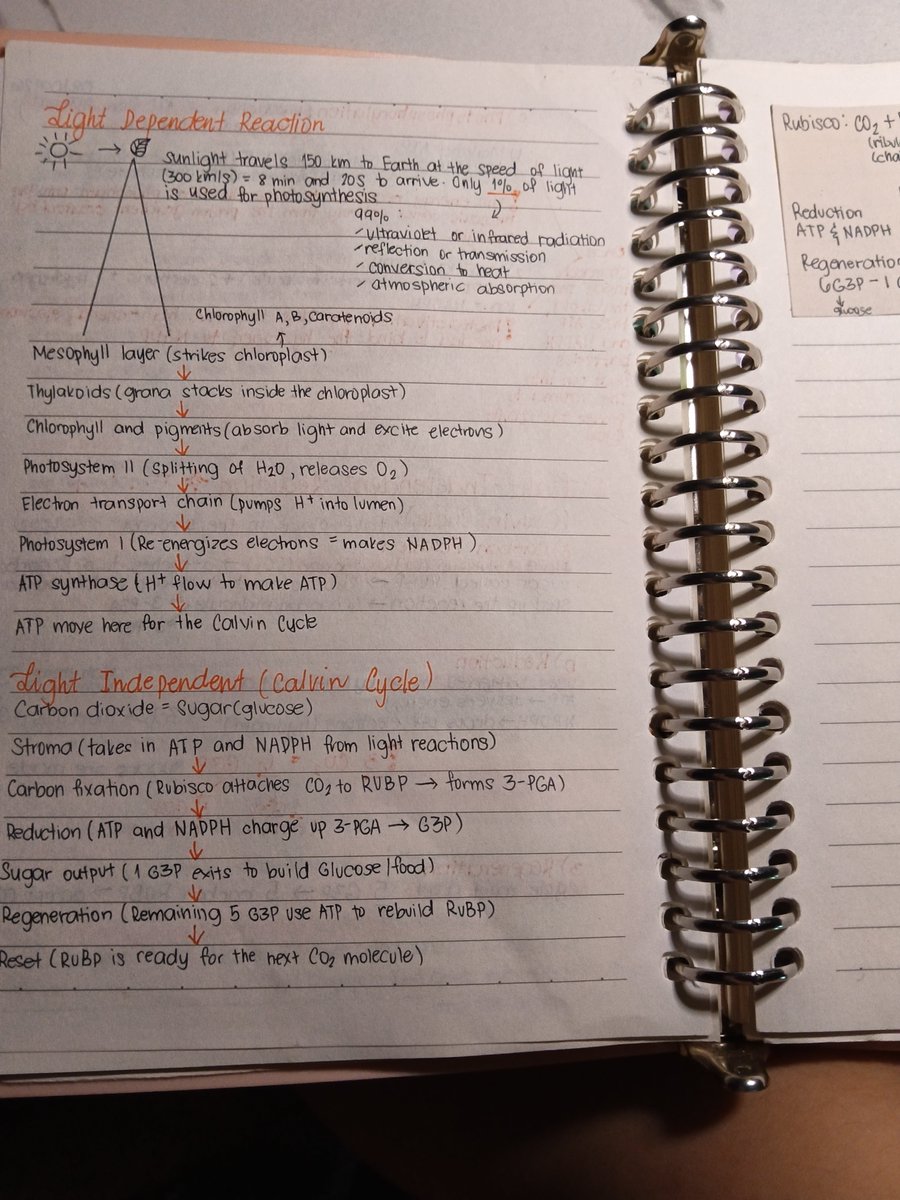 Light Dependent Reaction
Sunlight travels 150 km to Earth at the speed of light
(300 km/s) = 8 min and 20s to arrive. Only 1% of light
is used for photosynthesis
99% :
ultraviolet or infrared radiation
reflection or transmission
conversion to heat
atmospheric absorption
Chlorophyll A, B, caratenoids
Mesophyll layer (strikes chloroplast)
Thylakoids (grana stacks inside the chloroplast)
Chlorophyll and pigments (absorb light and excite electrons)
Photosystem II (Splitting of H2O, releases O2)
Electron transport chain (pumps H+ into lumen)
Photosystem I (Re-energizes electrons = makes NADPH)
ATP synthase (H+ flow to make ATP)
ATP move here for the Calvin Cycle
Light Independent (Calvin Cycle)
Carbon dioxide = Sugar (glucose)
Stroma (takes in ATP and NADPH from light reactions)
Carbon fixation (Rubisco attaches CO2 to RUBP → forms 3-PGA)
Reduction (ATP and NADPH charge up 3-PGA → G3P)
Sugar output (1 G3P exits to build Glucose/food)
Regeneration (Remaining 5 G3P use ATP to rebuild RuBP)
Reset (RUBP is ready for the next CO2 molecule)
Rubisco: CO2 +
Reduction
ATP & NADPH
Regeneration
6G3P - 1
glucose